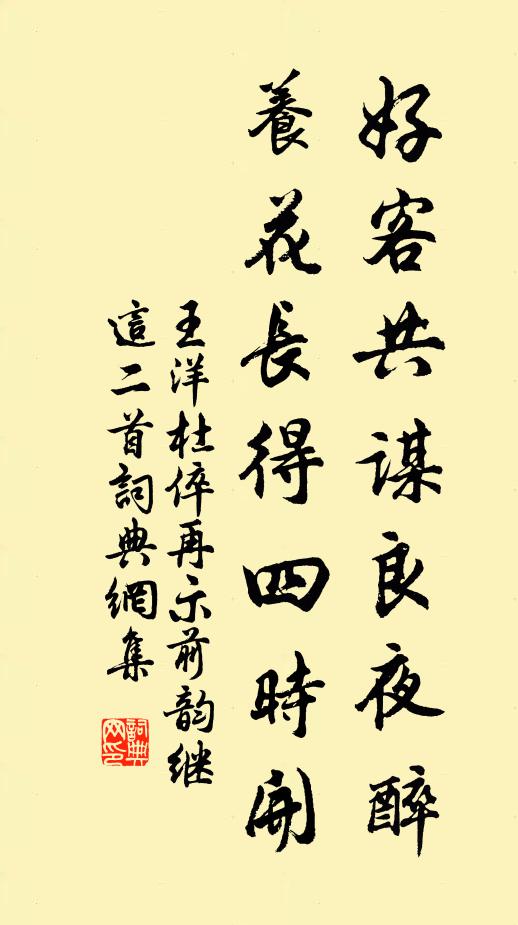 好客共謀良夜醉
養花長得四時開
王洋杜倅再示前韵继
這二首詞典網集
詞典网印